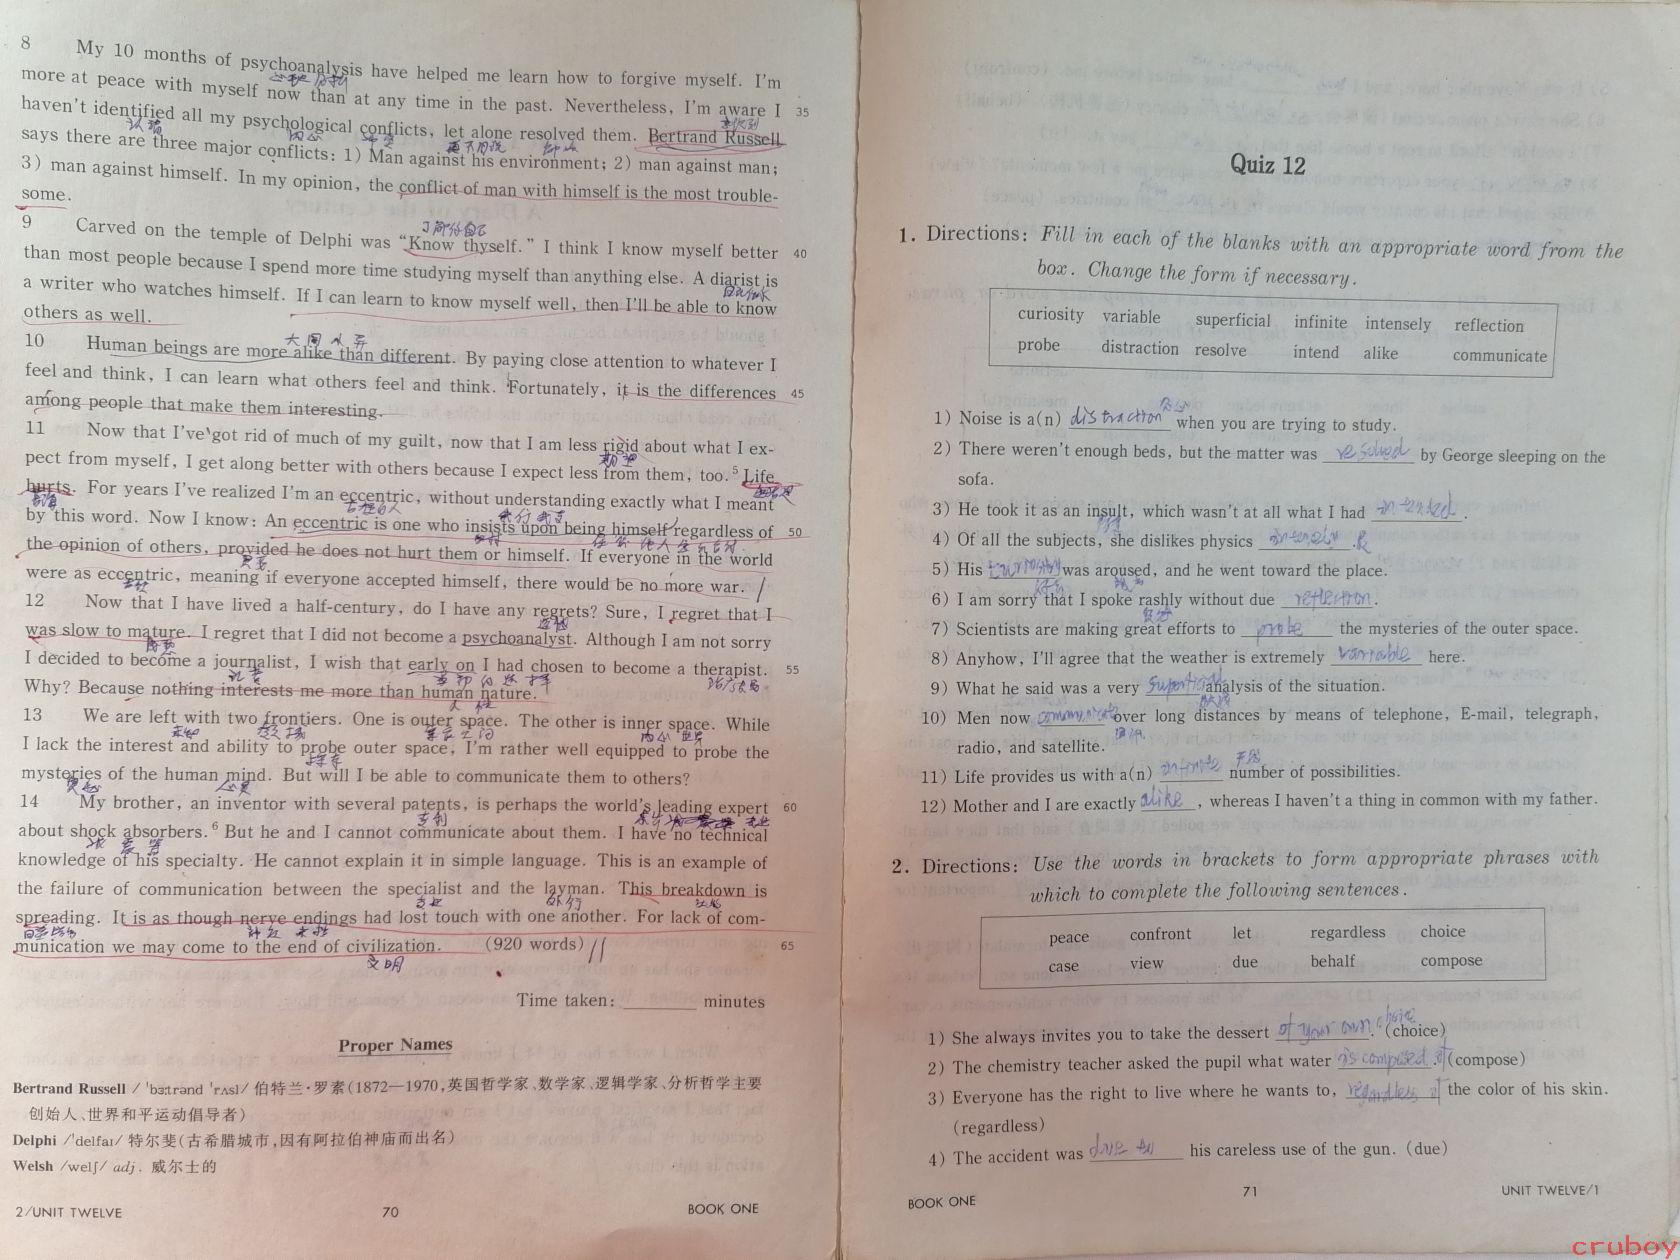 8 My 10 months of psychoanalysis have helped me learn how to forgive myself. I'm
more at peace with myself now than at any time in the past. Nevertheless, I'm aware I 35
haven't identified all my psychological conflicts, let alone resolved them. Bertrand Russell
says there are three major conflicts: 1) Man against his environment; 2) man against man;
3) man against himself. In my opinion, the conflict of man with himself is the most trouble-
some.
9 Carved on the temple of Delphi was "Know thyself." I think I know myself better 40
了解你自己
than most people because I spend more time studying myself than anything else. A diarist is
a writer who watches himself. If I can learn to know myself well, then I'll be able to know
others as well.
10 Human beings are more alike than different. By paying close attention to whatever I
大同小异
feel and think, I can learn what others feel and think. Fortunately, it is the differences 45
among people that make them interesting.
11 Now that I've got rid of much of my guilt, now that I am less rigid about what I ex-
pect from myself, I get along better with others because I expect less from them, too.5 Life
期望
hurts. For years I've realized I'm an eccentric, without understanding exactly what I meant
by this word. Now I know: An eccentric is one who insists upon being himself regardless of 50
the opinion of others, provided he does not hurt them or himself. If everyone in the world
were as eccentric, meaning if everyone accepted himself, there would be no more war.
12 Now that I have lived a half-century, do I have any regrets? Sure, I regret that I
was slow to mature. I regret that I did not become a psychoanalyst. Although I am not sorry
I decided to become a journalist, I wish that early on I had chosen to become a therapist. 55
记者
Why? Because nothing interests me more than human nature.
人性
13 We are left with two frontiers. One is outer space. The other is inner space. While
I lack the interest and ability to probe outer space, I'm rather well equipped to probe the
mysteries of the human mind. But will I be able to communicate them to others?
14 My brother, an inventor with several patents, is perhaps the world's leading expert 60
专利
about shock absorbers.6 But he and I cannot communicate about them. I have no technical
knowledge of his specialty. He cannot explain it in simple language. This is an example of
the failure of communication between the specialist and the layman. This breakdown is
外行
spreading. It is as though nerve endings had lost touch with one another. For lack of com-
munication we may come to the end of civilization. (920 words) 65
文明
Time taken: minutes
Proper Names
Bertrand Russell / 'bɜːtrənd 'rʌsl/ 伯特兰·罗素(1872—1970,英国哲学家、数学家、逻辑学家、分析哲学主要
创始人、世界和平运动倡导者)
Delphi /'delfaɪ/ 特尔斐(古希腊城市,因有阿拉伯神庙而出名)
Welsh /welʃ/ adj. 威尔士的
2/UNIT TWELVE 70 BOOK ONE
Quiz 12
1. Directions: Fill in each of the blanks with an appropriate word from the
box. Change the form if necessary.
curiosity variable superficial infinite intensely reflection
probe distraction resolve intend alike communicate
1) Noise is a(n) distraction when you are trying to study.
2) There weren't enough beds, but the matter was resolved by George sleeping on the
sofa.
3) He took it as an insult, which wasn't at all what I had intended.
4) Of all the subjects, she dislikes physics intensely.
5) His curiosity was aroused, and he went toward the place.
6) I am sorry that I spoke rashly without due reflection.
7) Scientists are making great efforts to probe the mysteries of the outer space.
8) Anyhow, I'll agree that the weather is extremely variable here.
9) What he said was a very superficial analysis of the situation.
10) Men now communicate over long distances by means of telephone, E-mail, telegraph,
radio, and satellite.
11) Life provides us with a(n) infinite number of possibilities.
12) Mother and I are exactly alike, whereas I haven't a thing in common with my father.
2. Directions: Use the words in brackets to form appropriate phrases with
which to complete the following sentences.
peace confront let regardless choice
case view due behalf compose
1) She always invites you to take the dessert of your own choice. (choice)
2) The chemistry teacher asked the pupil what water is composed of. (compose)
3) Everyone has the right to live where he wants to, regardless of the color of his skin.
(regardless)
4) The accident was due to his careless use of the gun. (due)
BOOK ONE 71 UNIT TWELVE/1
cruboy